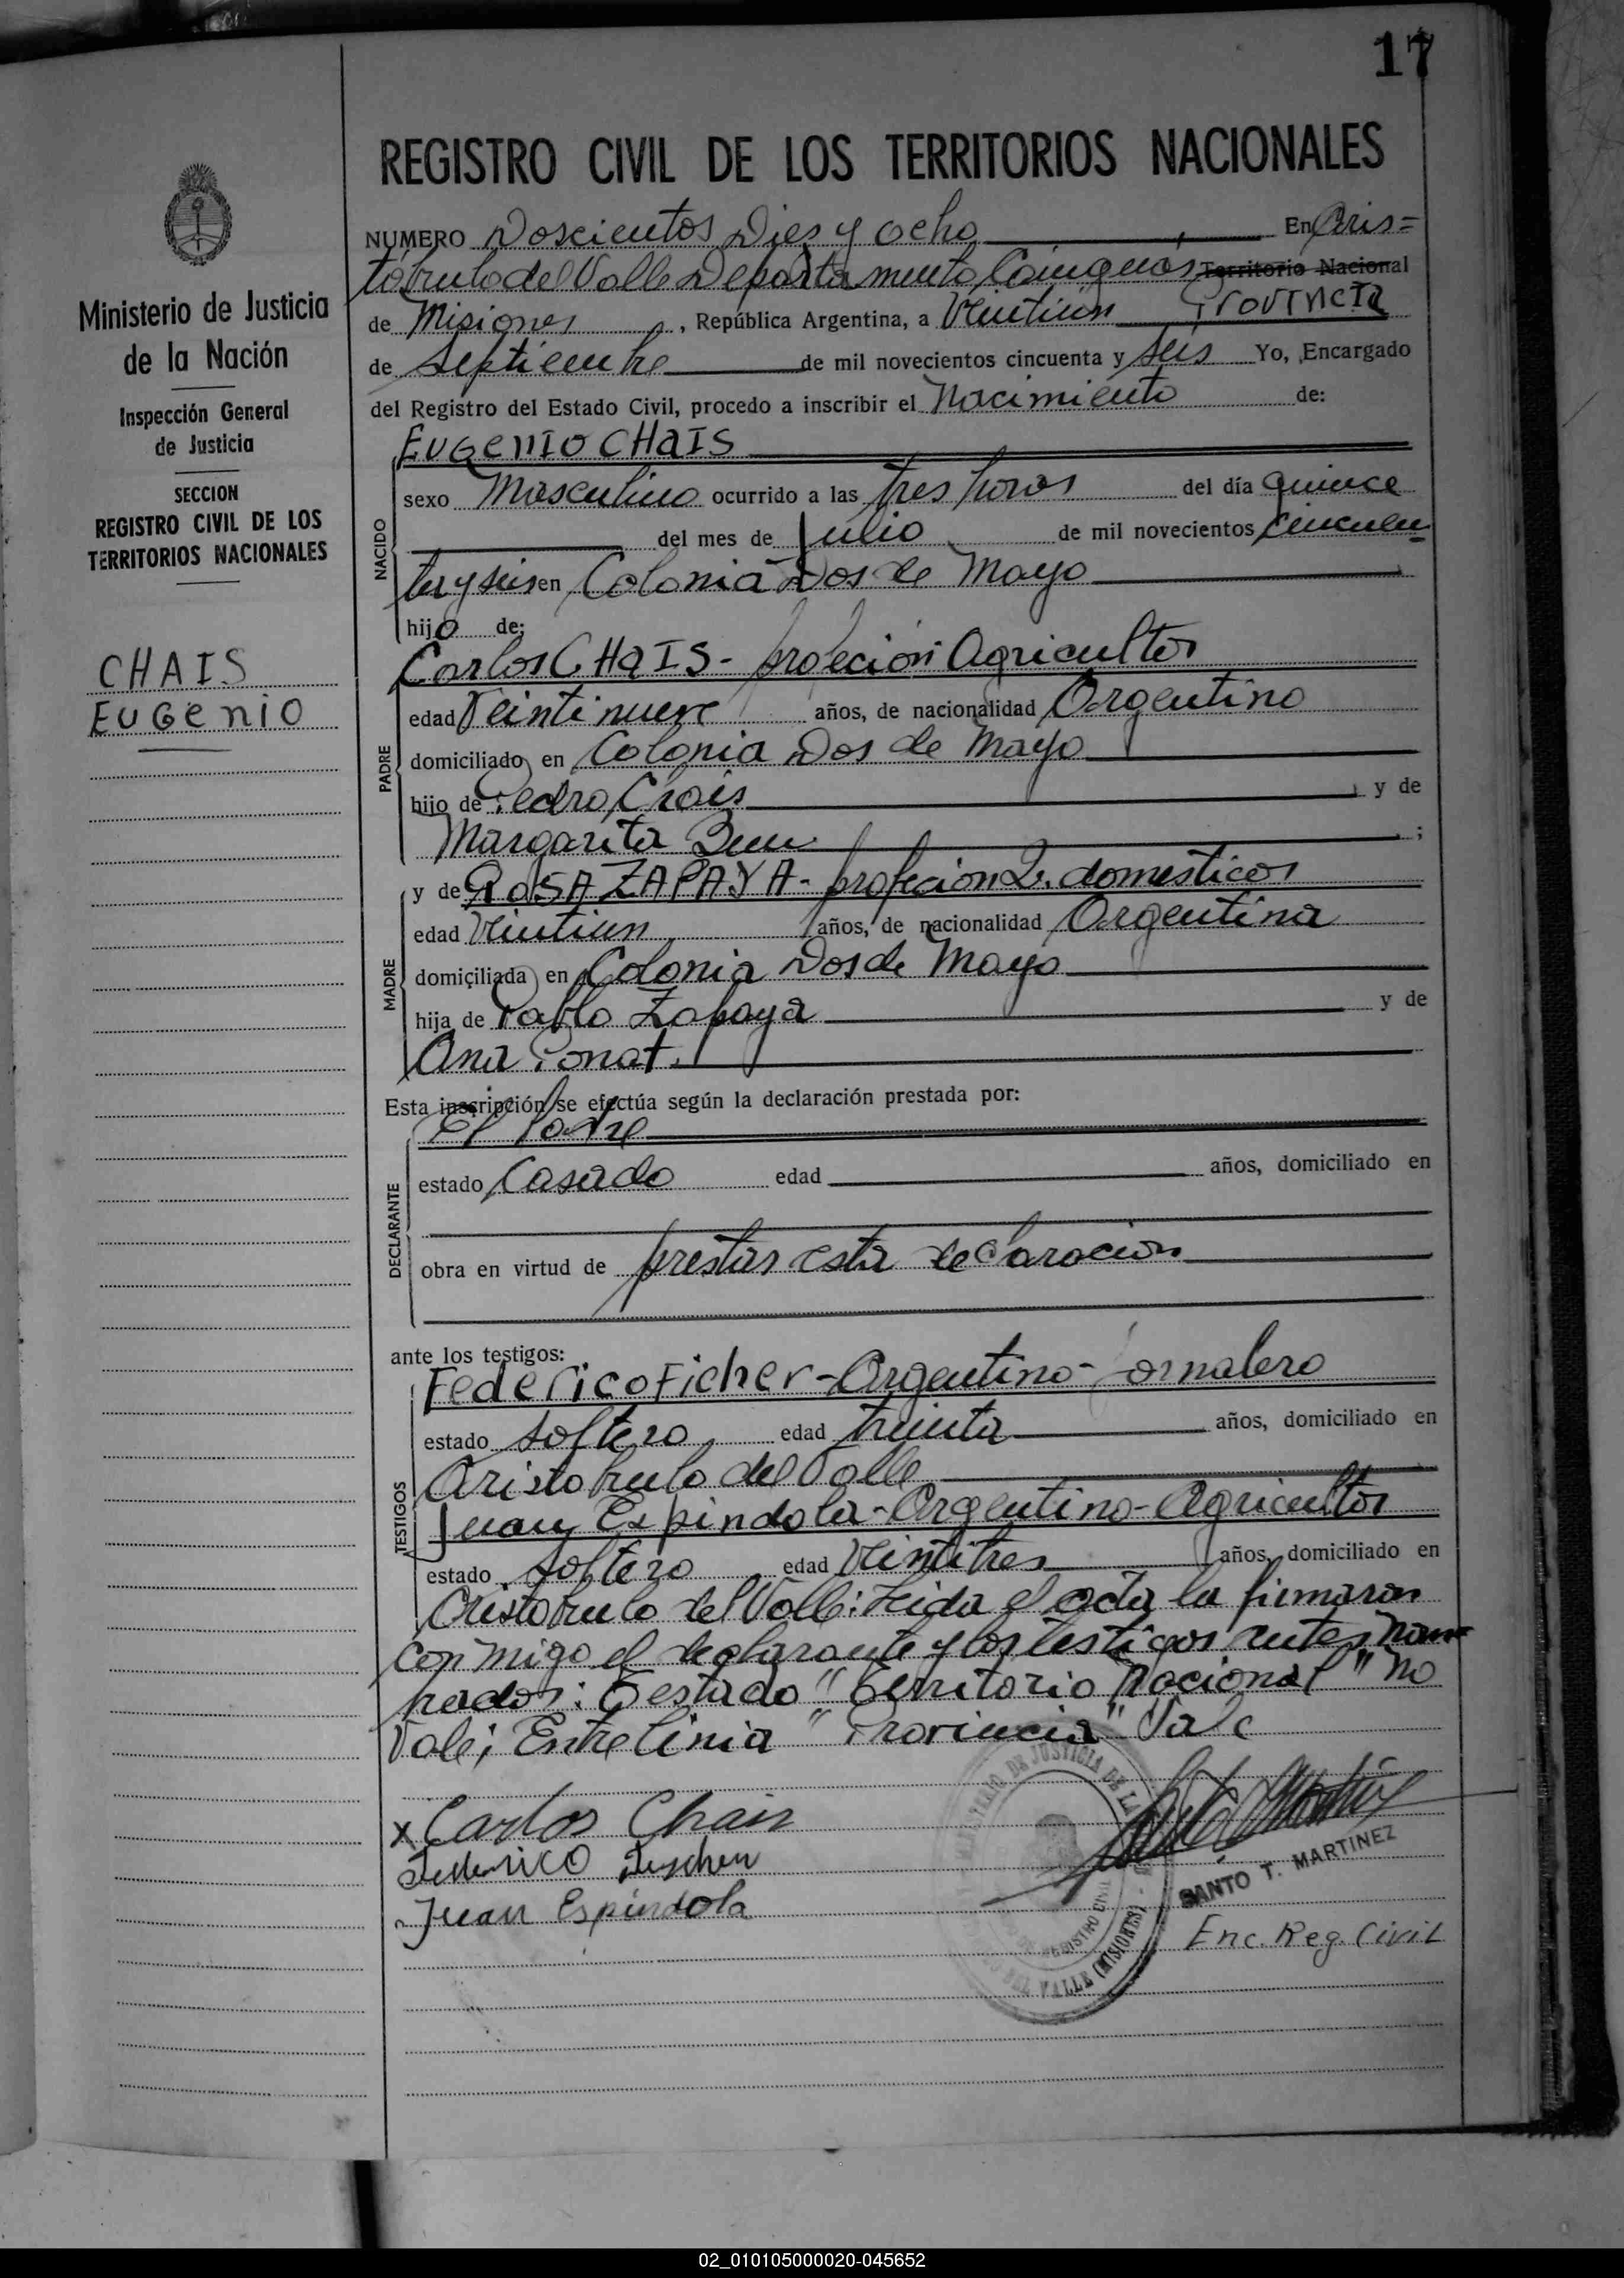 17
REGISTRO CIVIL DE LOS TERRITORIOS NACIONALES
NUMERO Doscientos Diez y ocho En Aris=
tobulo del Valle Departamento Cainguas Territorio Nacional
de Misiones, República Argentina, a Veintiun Provincia
de Septiembre de mil novecientos cincuenta y seis Yo, Encargado
del Registro del Estado Civil, procedo a inscribir el Nacimiento de:
EUGENIO CHAIS
sexo Masculino ocurrido a las tres horas del día quince
del mes de Julio de mil novecientos cincuen
ta y seis en Colonia Dos de Mayo
hijo de:
Carlos CHAIS - profecion Agricultor
edad Veintinueve años, de nacionalidad Argentino
domiciliado en Colonia Dos de Mayo
hijo de Pedro Chais y de
Margarita ;
y de ROSA ZAPAYA - profecion Q. domesticos
edad Veintiun años, de nacionalidad Argentina
domiciliada en Colonia Dos de Mayo
hija de Pablo Zapaya y de
Ana Ponat
Esta inscripción se efectúa según la declaración prestada por:
El Padre
estado Casado edad años, domiciliado en
obra en virtud de prestar esta declaracion
ante los testigos:
Federico Ficher - Argentino - Jornalero
estado soltero edad treinta años, domiciliado en
Aristobulo del Valle
Juan Espindola - Argentino - Agricultor
estado soltero edad Veintitres años, domiciliado en
Aristobulo del Valle: Leida el acta la firmaron
conmigo el declarante y los testigos antes nom
brados: Testado "Territorio Nacional" no
Vale; Entrelinia "Provincia" Vale
x Carlos Chais
Federico
Juan Espindola
SANTO T. MARTINEZ
Enc. Reg. Civil
MINISTERIO DE JUSTICIA DE LA
REGISTRO CIVIL
DEL VALLE (MISIONES)
Ministerio de Justicia
de la Nación
Inspección General
de Justicia
SECCION
REGISTRO CIVIL DE LOS
TERRITORIOS NACIONALES
CHAIS
EUGENIO
NACIDO
PADRE
MADRE
DECLARANTE
TESTIGOS
02_010105000020-045652